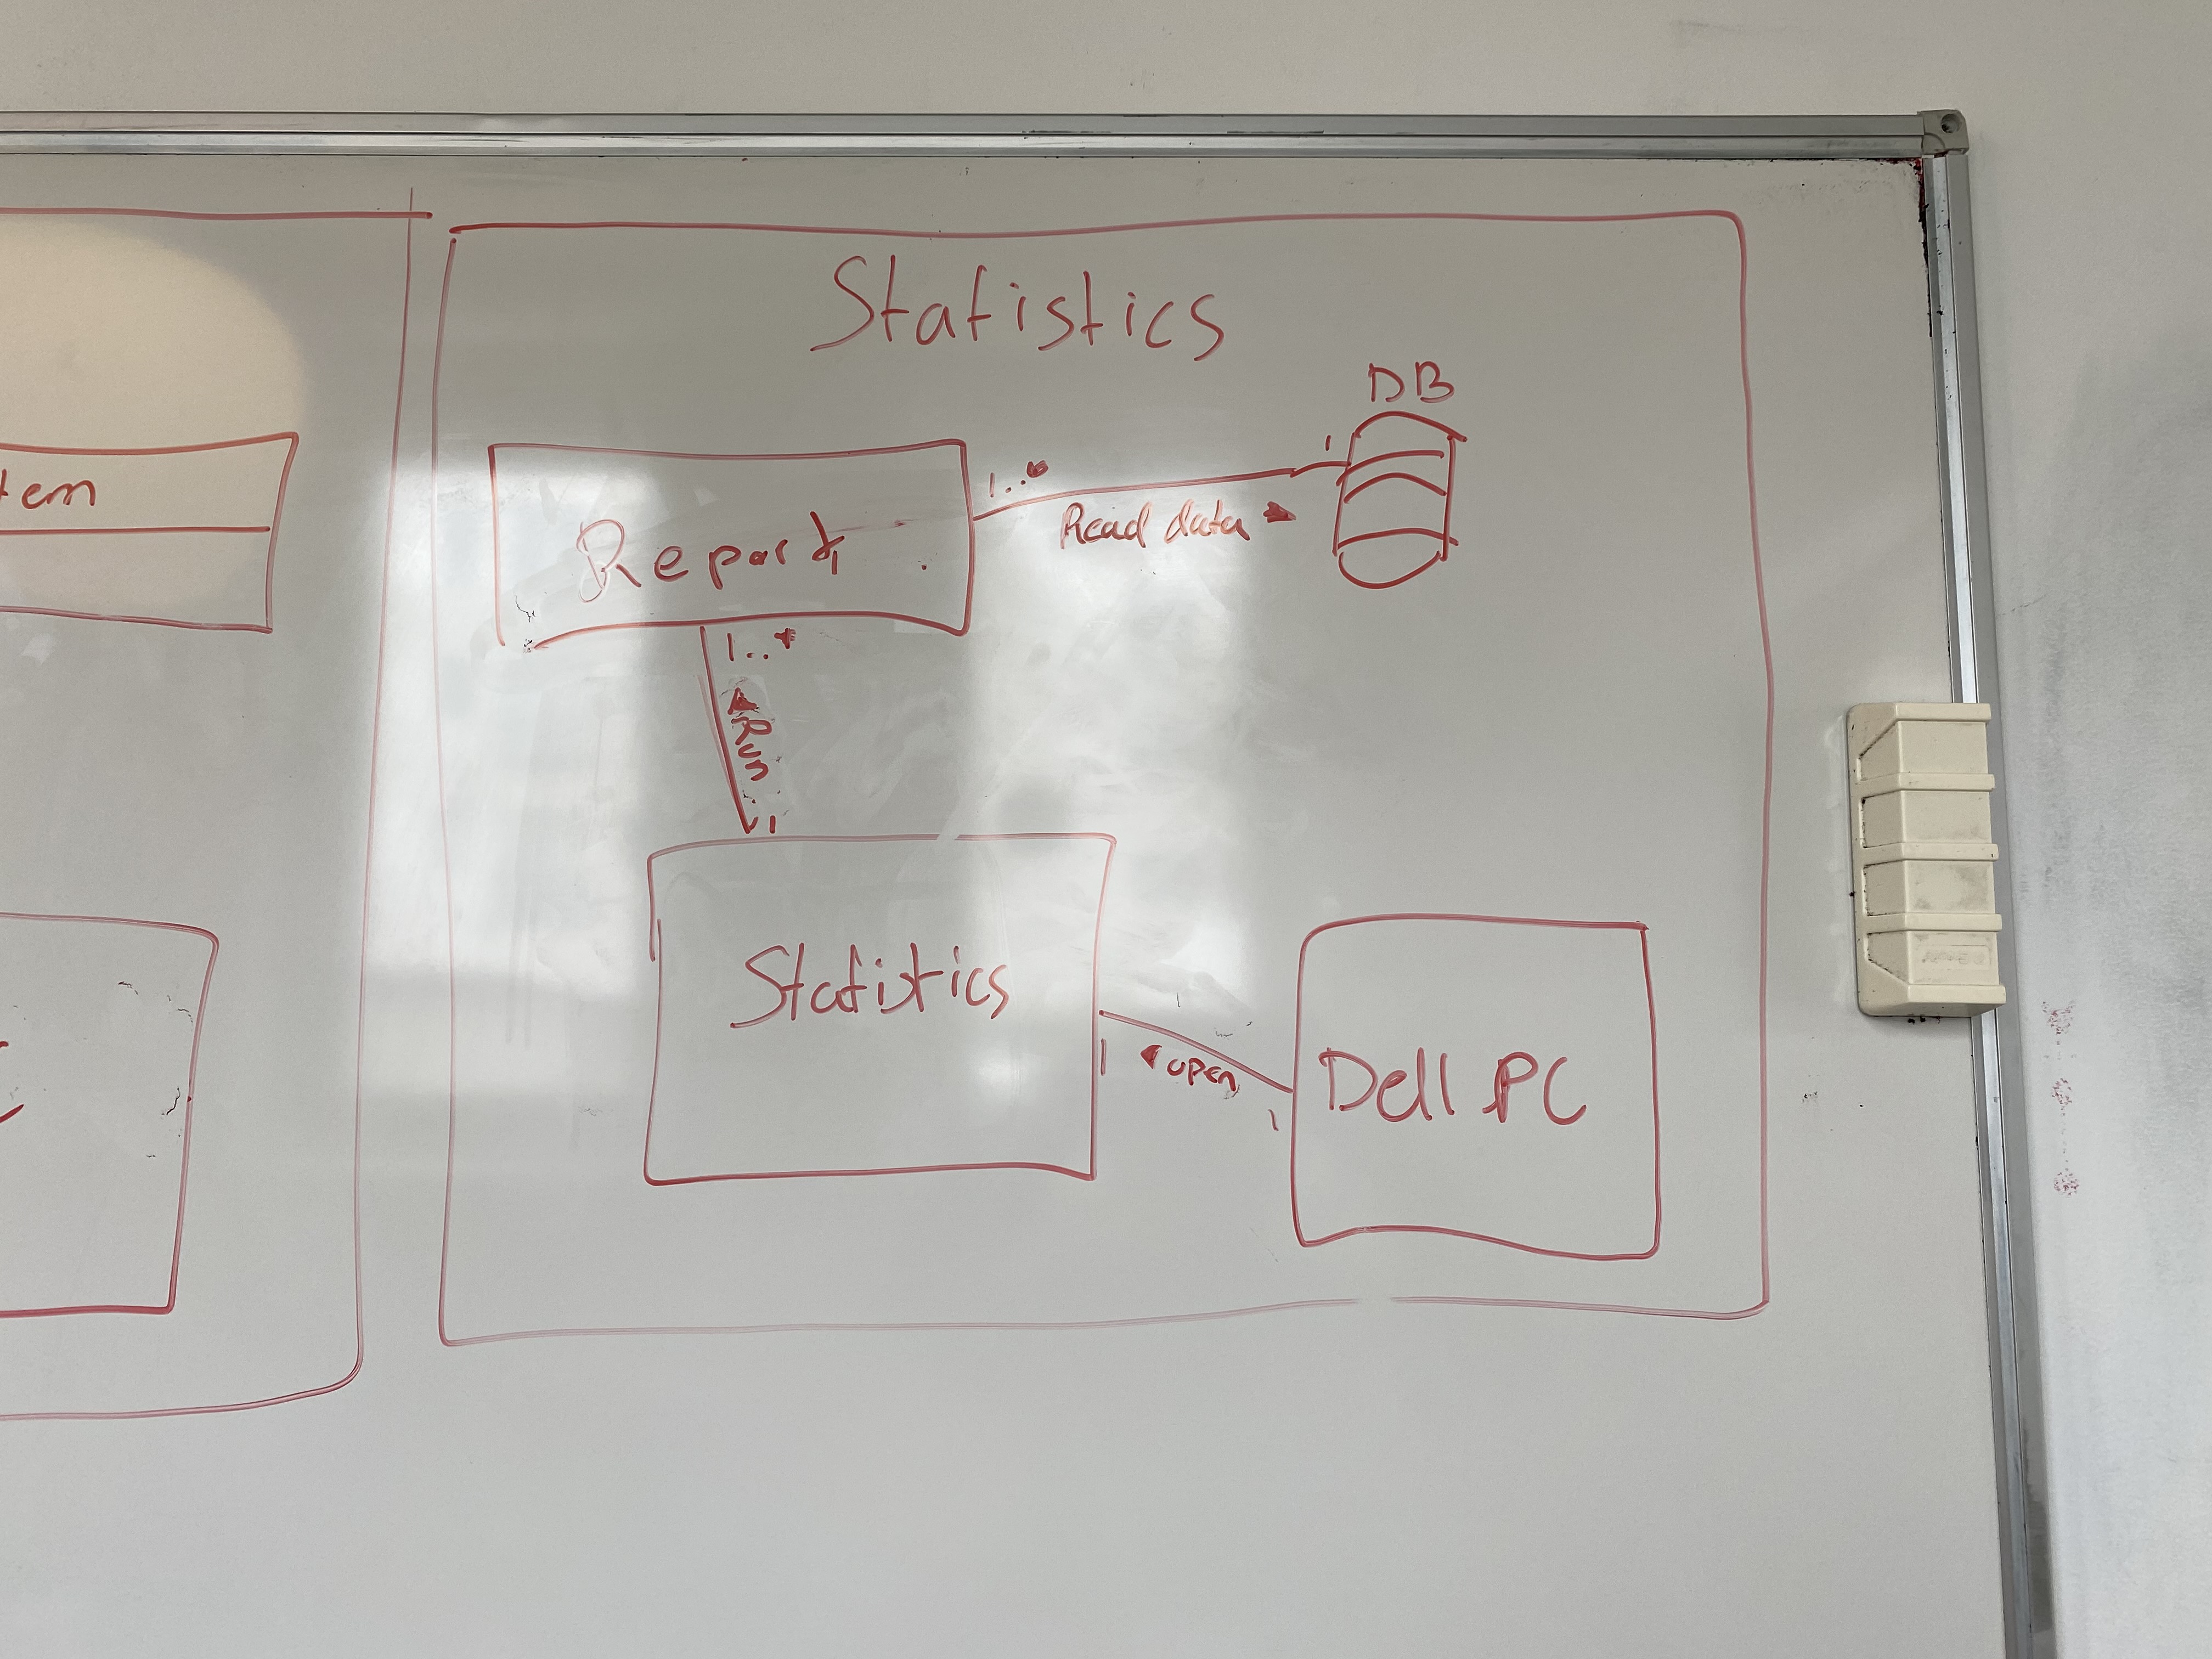 Statistics
DB
tem
Report
1..*
1
Read data ►
1..*
◄ Run
1
Statistics
1
◄ open
1
Dell PC
C